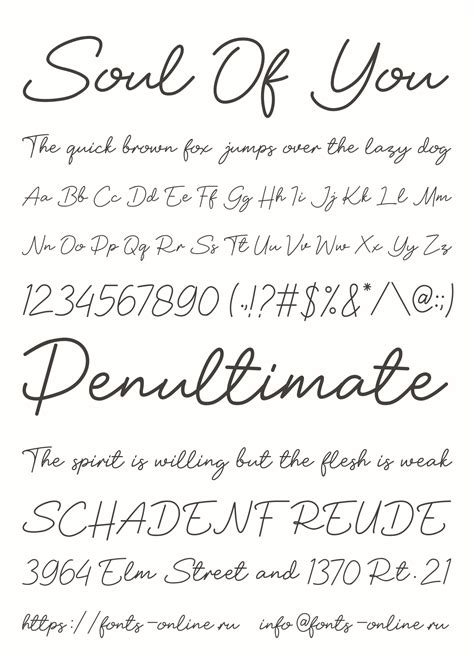 Soul Of You
The quick brown fox jumps over the lazy dog
Aa Bb Cc Dd Ee Ff Gg Hh Ii Jj Kk Ll Mm
Nn Oo Pp Qq Rr Ss Tt Uu Vv Ww Xx Yy Zz
1234567890 (.,!?#$%&*/\@:;)
Penultimate
The spirit is willing but the flesh is weak
SCHADENFREUDE
3964 Elm Street and 1370 Rt. 21
https://fonts-online.ru info@fonts-online.ru